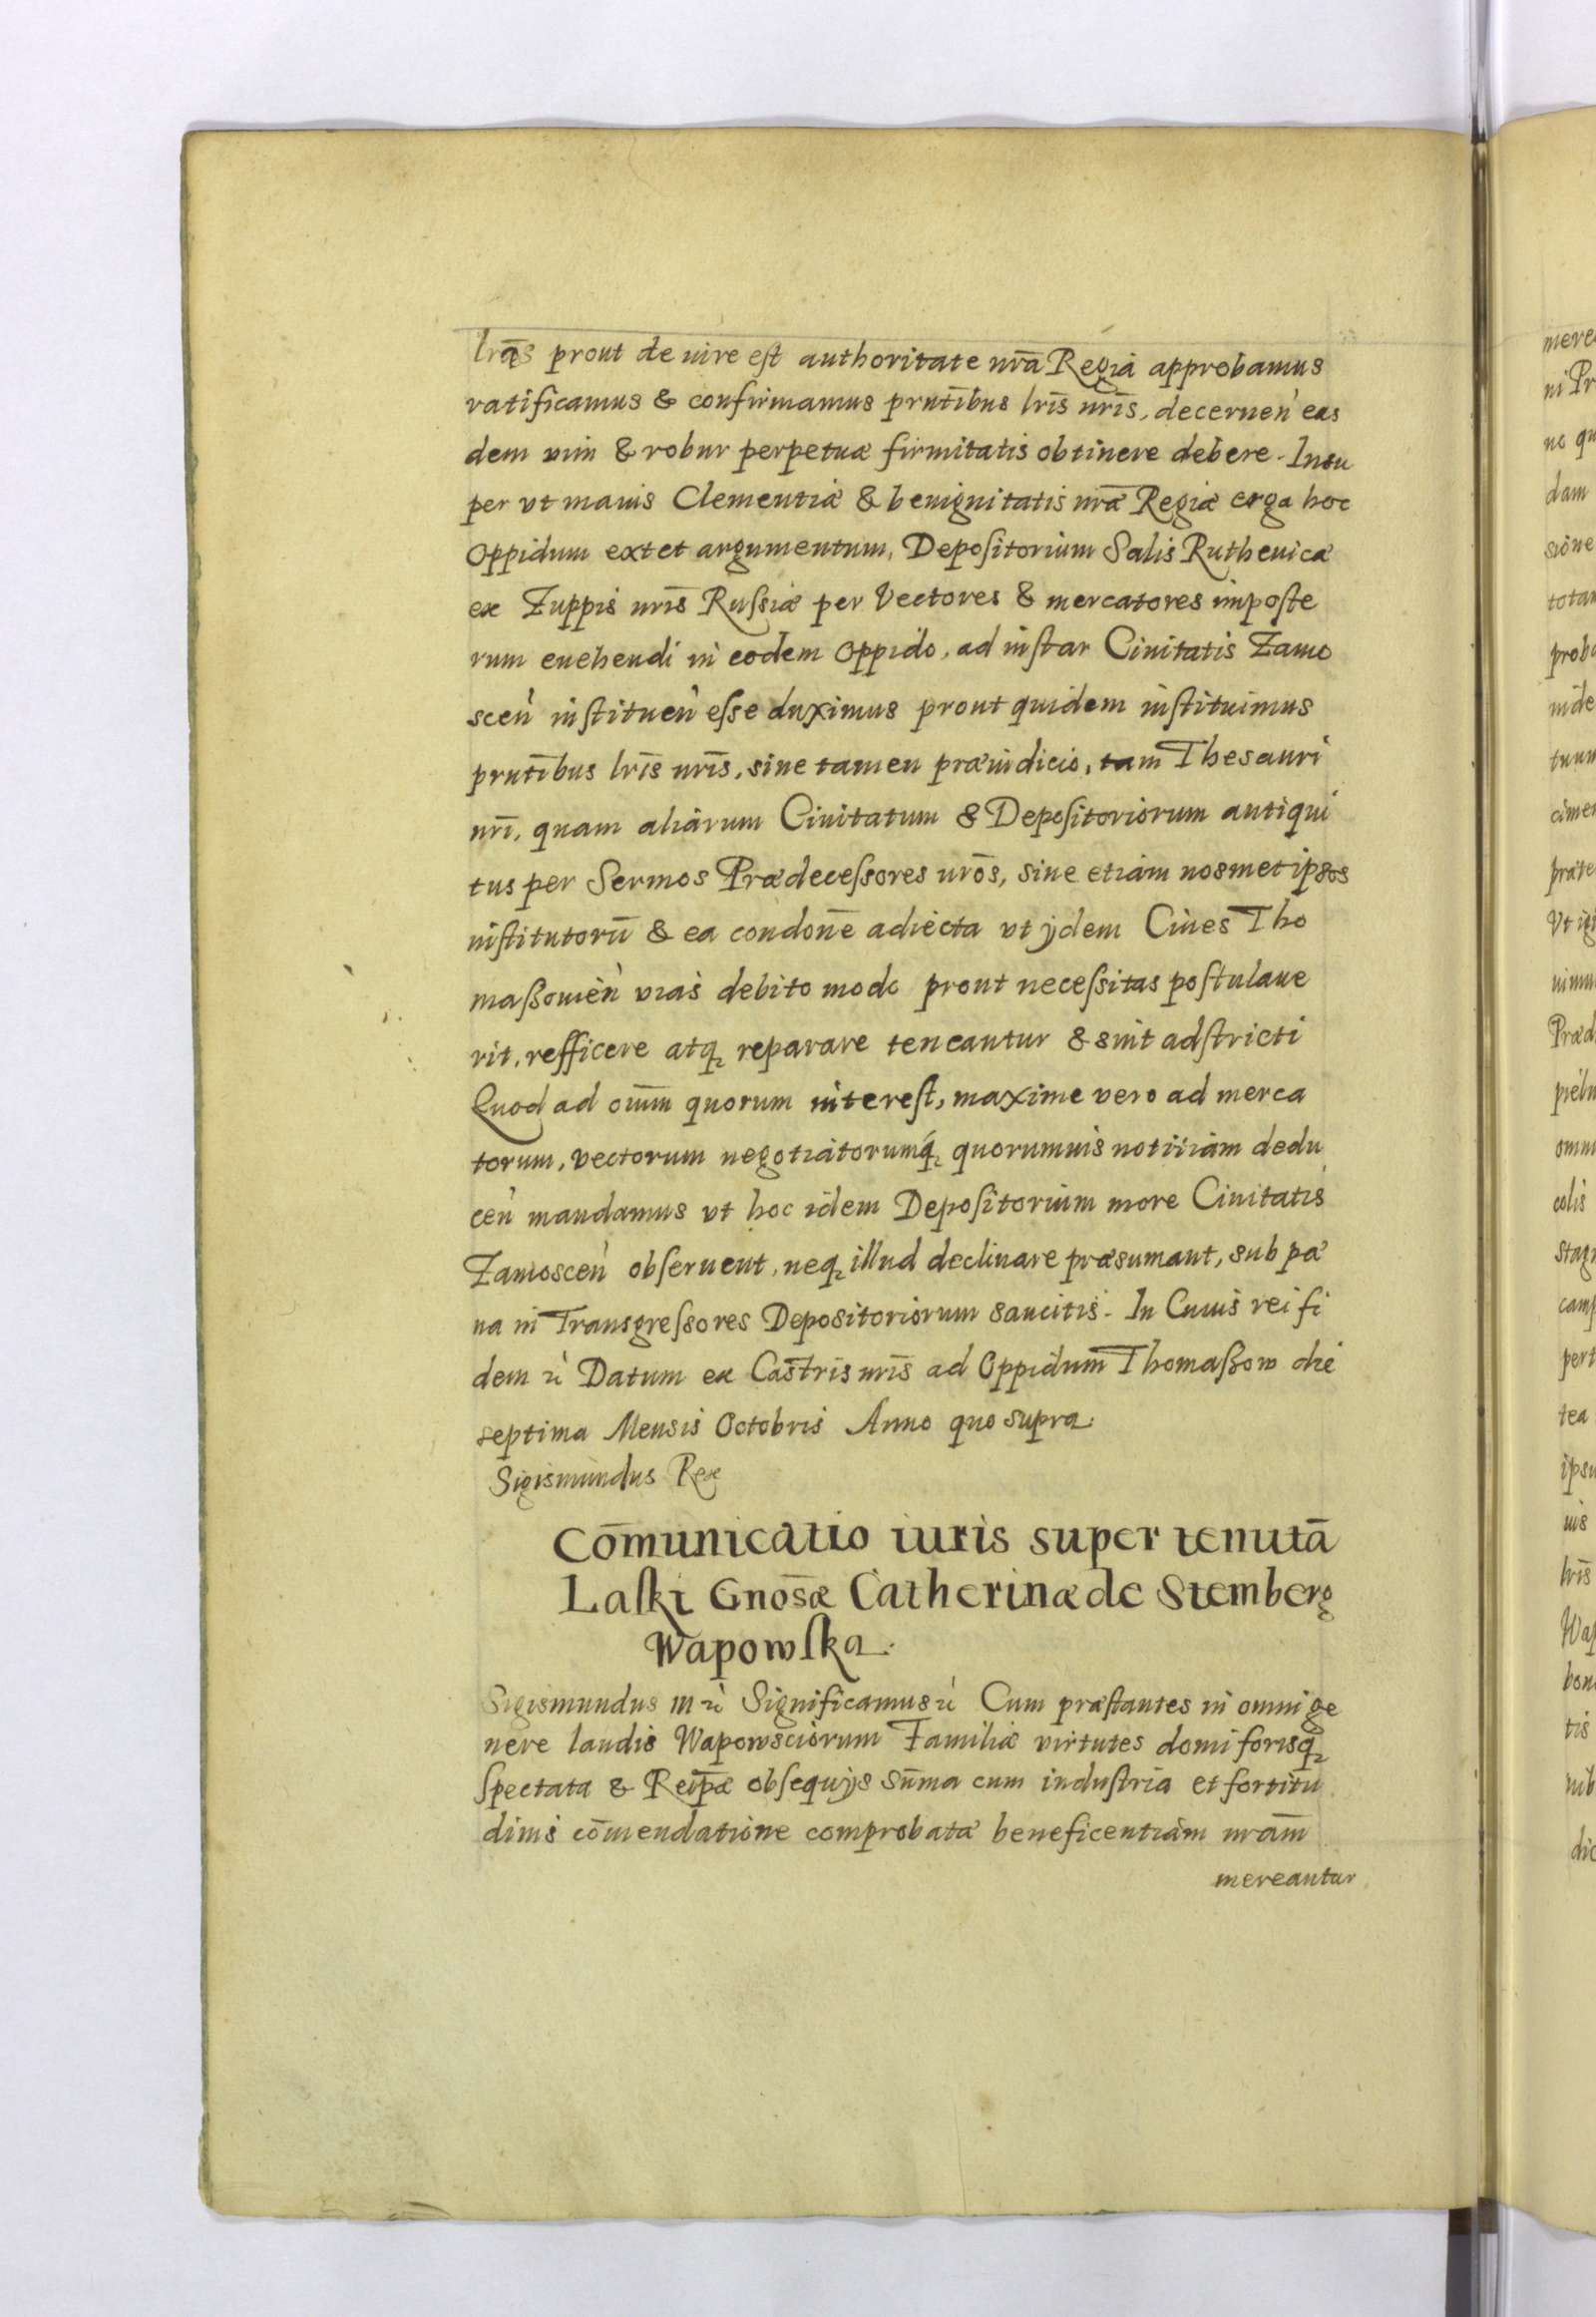 lrãs prout de iure est authoritate nrã Regia approbamus
ratificamus & confirmamus prntĩbus lrĩs nrĩs, decernen̍ eas
dem vim & robur perpetuæ firmitatis obtinere debere. Insu
per vt maius Clementiæ & benignitatis nræ̃ Regiæ erga hoc
Oppidum extet argumentum, Depositorium Salis Ruthenicæ
ex Zuppis nrĩs Russiæ per Vectores & mercatores imposte
rum euehendi in eodem Oppido, ad instar Ciuitatis Zamo
scen̍ instituen̍ esse duximus prout quidem instituimus
prntĩbus lrĩs nrĩs, sine tamen præiudicio, tam Thesauri
nrĩ, quam aliarum Ciuitatum & Depositoriorum antiqui
tus per Sermos Prædecessores nrõs, siue etiam nosmetipsos
institutorũ & ea condonẽ adiecta vt ijdem Ciues Tho
maßouien̍ vias debito modo prout necessitas postulaue
rit, refficere atq; reparare teneantur & sint adstricti
Quod ad oĩum quorum interest, maxime vero ad merca
torum, vectorum negotiatorumq́; quorumuis notitiam dedu
cen̍ mandamus vt hoc idem Depositorium more Ciuitatis
Zamoscen̍ obseruent, neq; illud declinare præsumant, sub pæ
na in Transgressores Depositoriorum sancitis. In Cuius rei fi
dem &c̍ Datum ex Castris nrĩs ad Oppidum Thomaßow die
septima Mensis Octobris Anno quo supra.
Sigismundus Rex
Cõmunicatio iuris super tenutã
Laski Gnosæ̃ Catherinæ de Stemberg
Wapowska.
Sigismundus III &c̍ Significamus &c̍ Cum præstantes in omni ge
nere laudis Wapowsciorum Familiæ virtutes domi forisq;
spectata & Reipæ̃ obsequijs sũma cum industria et fortitu
dinis cõmendatione comprobatæ beneficentiam nrãm
mereantur